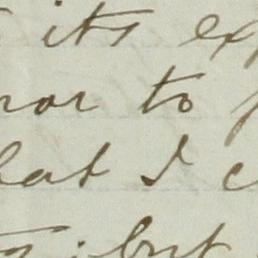 its ex
nor to
hat I c
; but